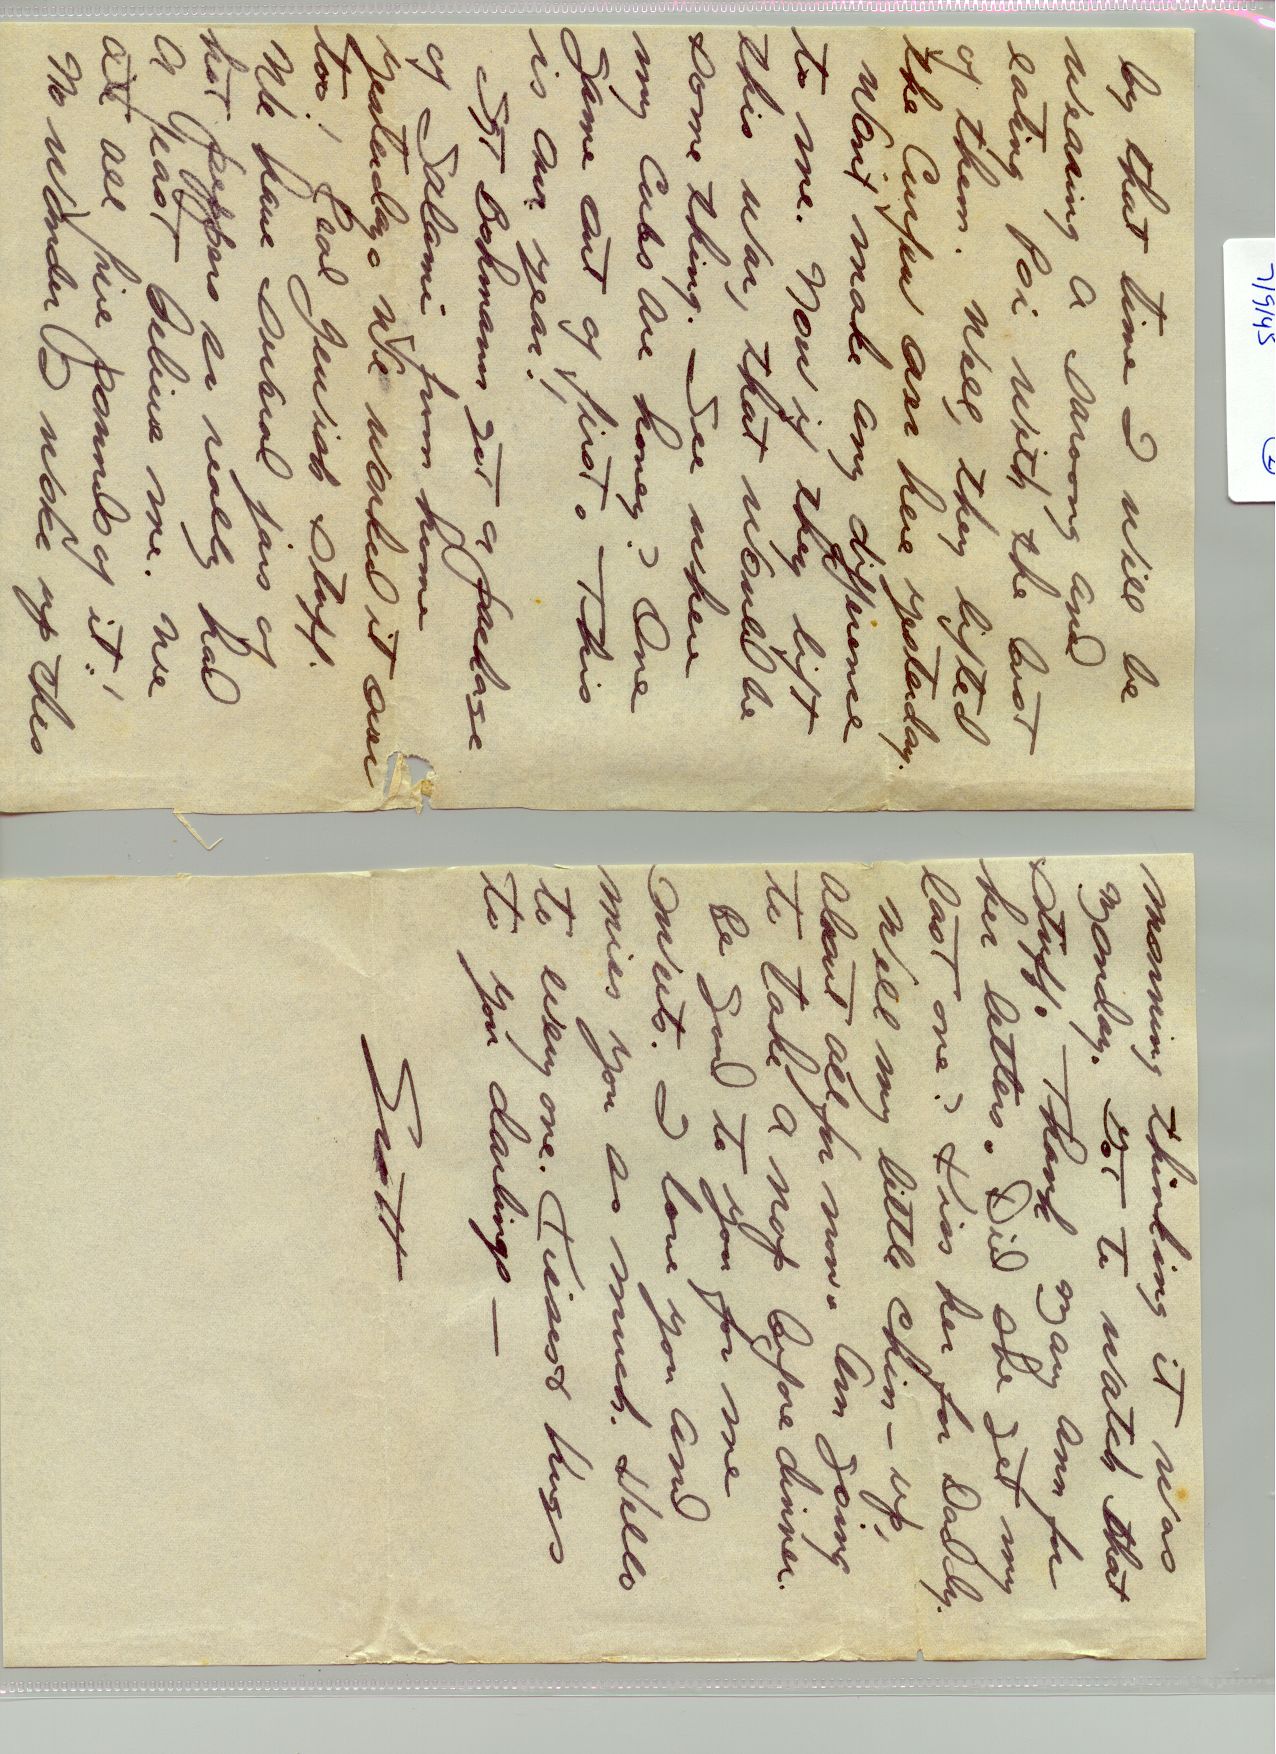 7/9/45 ②
by that time I will be
wearing a sarong and
eating poi with the best
of them. Well, they lifted
the curfew over here yesterday.
Won't make any difference
to me. Now if they lift
this war, that would be
something. See where
my Cubs are honey? One
game out of first. This
is our year!
Sgt Bohmann got a package
of Salami from home
yesterday. We worked it over
too! Real Jewish stuff.
We have several jars of
hot peppers so really had
a feast believe me. We
ate all five pounds of it!
No wonder I woke up this
morning thinking it was
Monday. Got to watch that
stuff. Thank Mary Ann for
her letters. Did she get my
last one? Kiss her for Daddy.
Well my little chin-up,
about all for now. Am going
to take a nap before dinner.
Be good to you for me
Sweets. I love you and
miss you so much. Hello
to everyone. Kisses & hugs
to you darlings —
Scotty